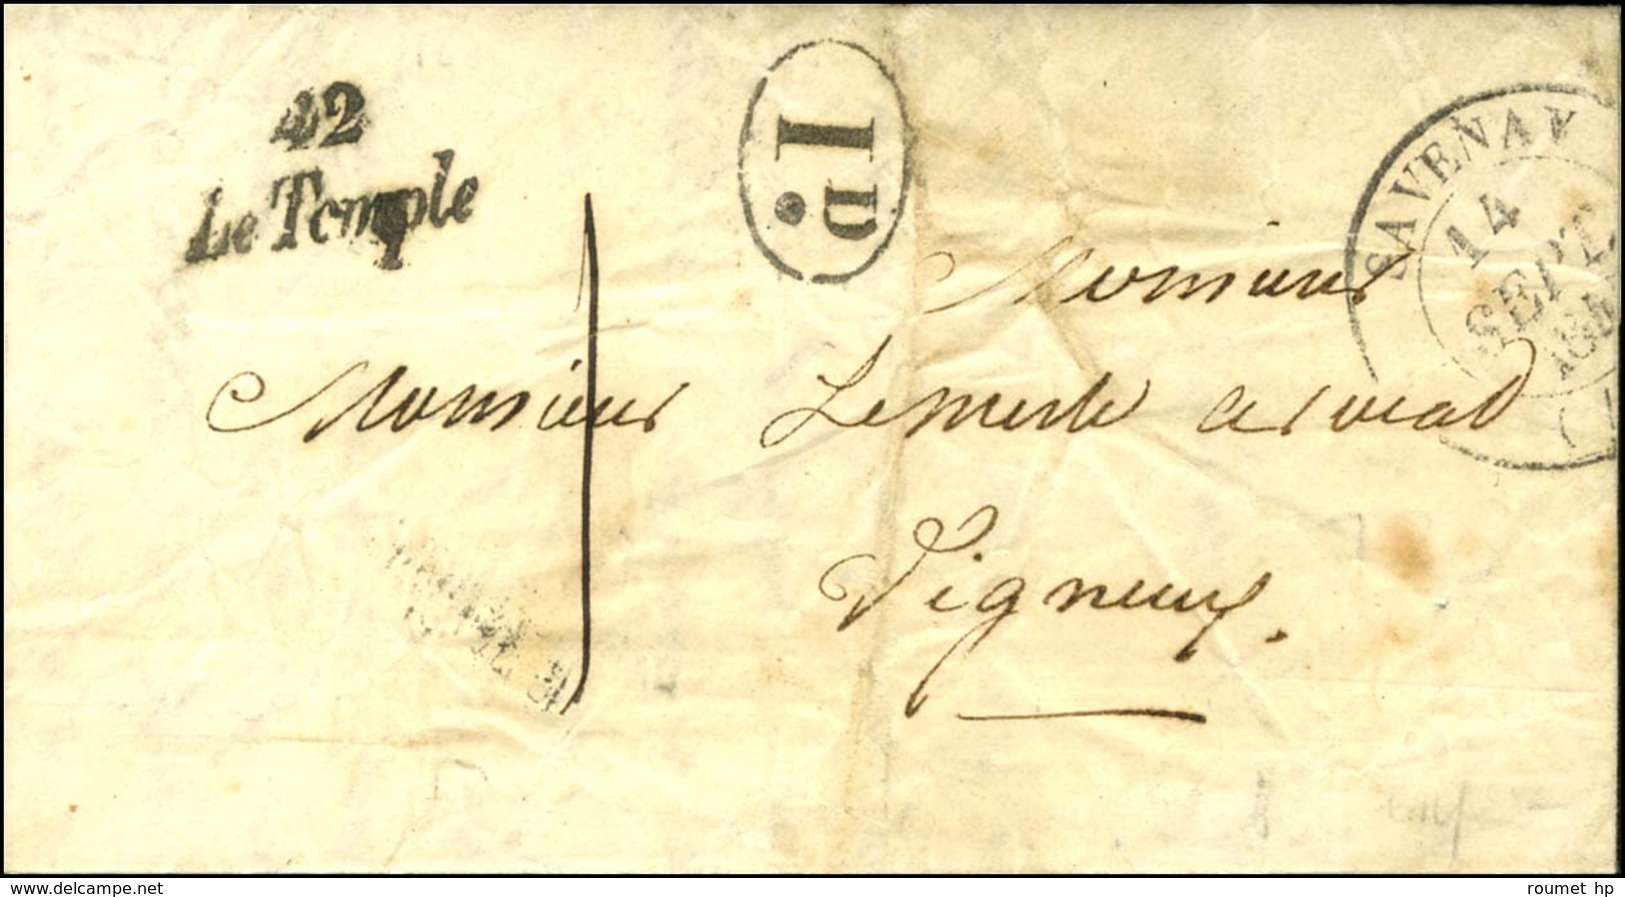 42
Le Temple
1D
SAVENAY
14
SEPT.
1
Monsieur
Monsieur Lemerle
Vigneux.
www.delcampe.net
roumet hp